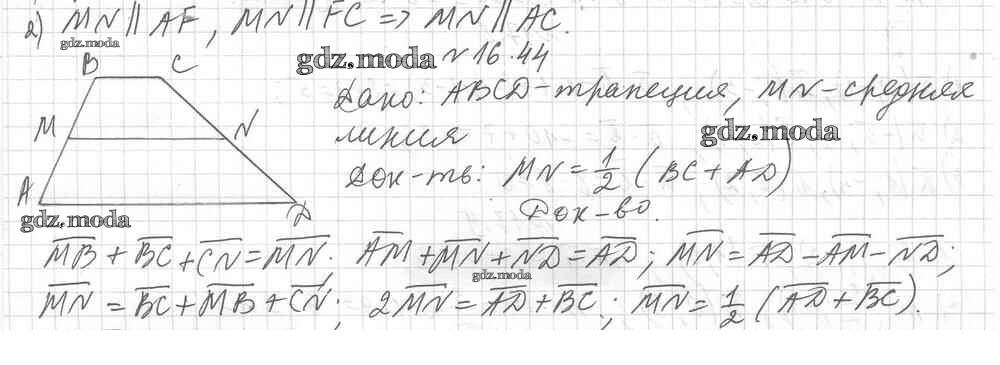 2) MN || AF, MN || FC => MN || AC.
gdz.moda
gdz.moda
N 16.44
B C
Дано: ABCD-трапеция, MN-средняя
линия
gdz.moda
M N
Док-ть: MN = 1/2 (BC + AD)
A D
gdz.moda
Док-во.
MB + BC + CN = MN. AM + MN + ND = AD; MN = AD - AM - ND;
gdz.moda
MN = BC + MB + CN; 2MN = AD + BC; MN = 1/2 (AD + BC).